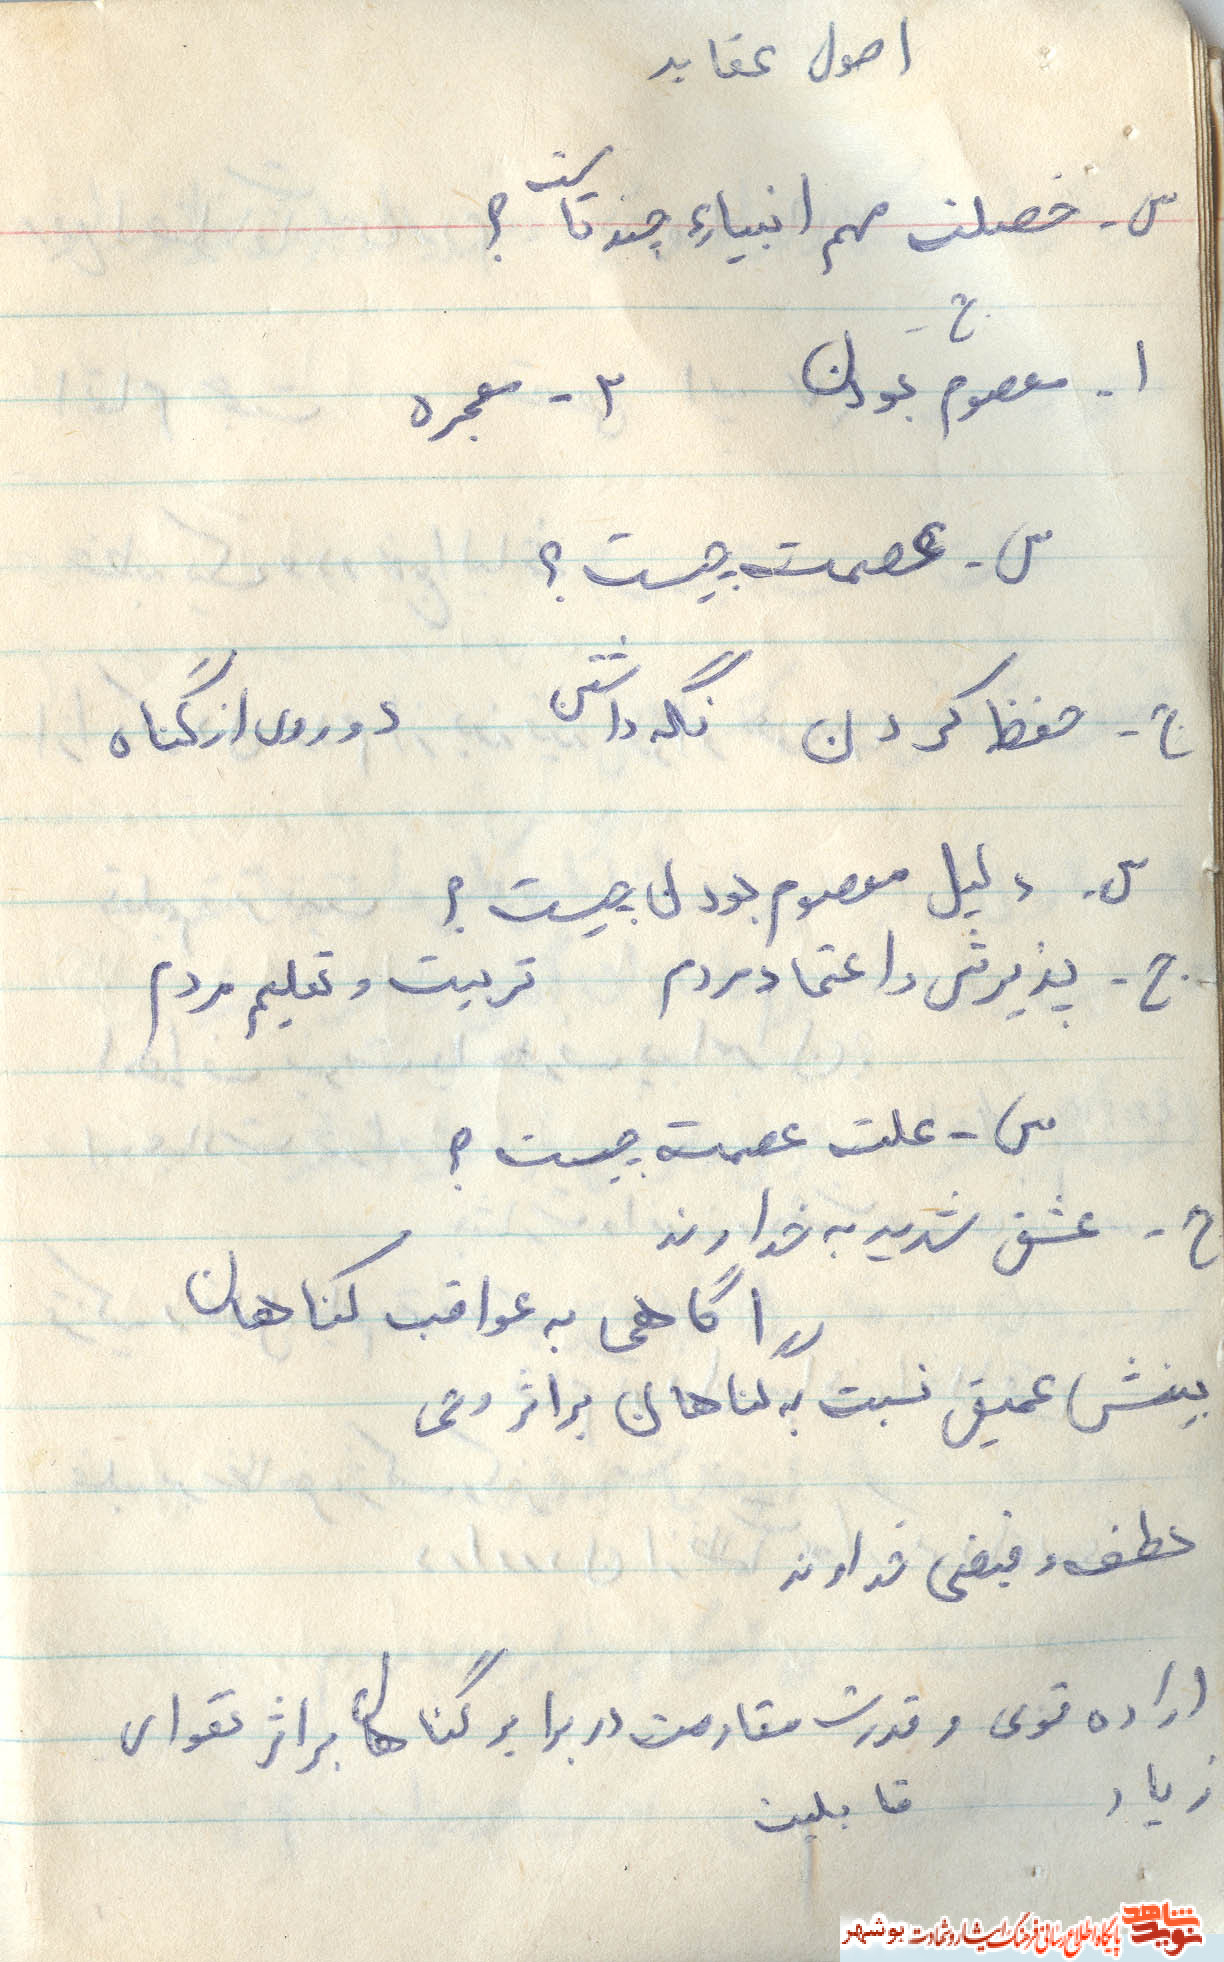 اصول عقاید
س- خصلت مهم انبیاء چند تاست؟
ج-
۱- معصوم بودن ۲- معجزه
س- عصمت چیست؟
ج- حفظ کردن نگه داشتن دوروی از گناه
س- دلیل معصوم بودن چیست؟
ج- پذیرش و اعتماد مردم تربیت و تعلیم مردم
س- علت عصمت چیست؟
ج- عشق شدید به خداوند
آگاهی به عواقب گناهان
بینش عمیق نسبت به گناهان براثر وحی
لطف و فیض خداوند
اراده قوی و قدرت مقاومت در برابر گناهان براثر تقوای
زیاد قابلیت
نوید شاهد
پایگاه اطلاع رسانی فرهنگ ایثار و شهادت بوشهر